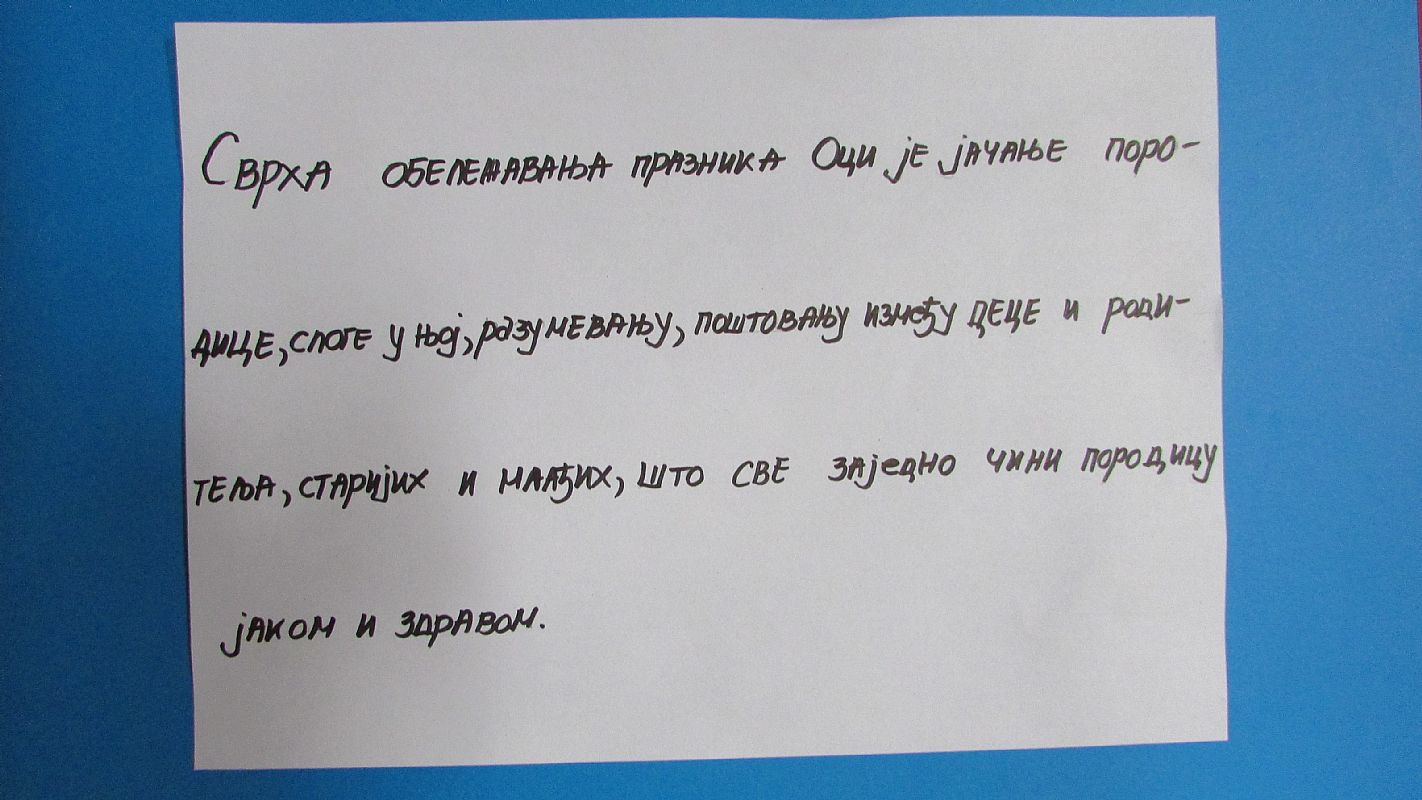 Сврха обележавања празника Оци је јачање поро-
дице, слоге у њој, разумевању, поштовању између деце и роди-
теља, старијих и млађих, што све заједно чини породицу
јаком и здравом.